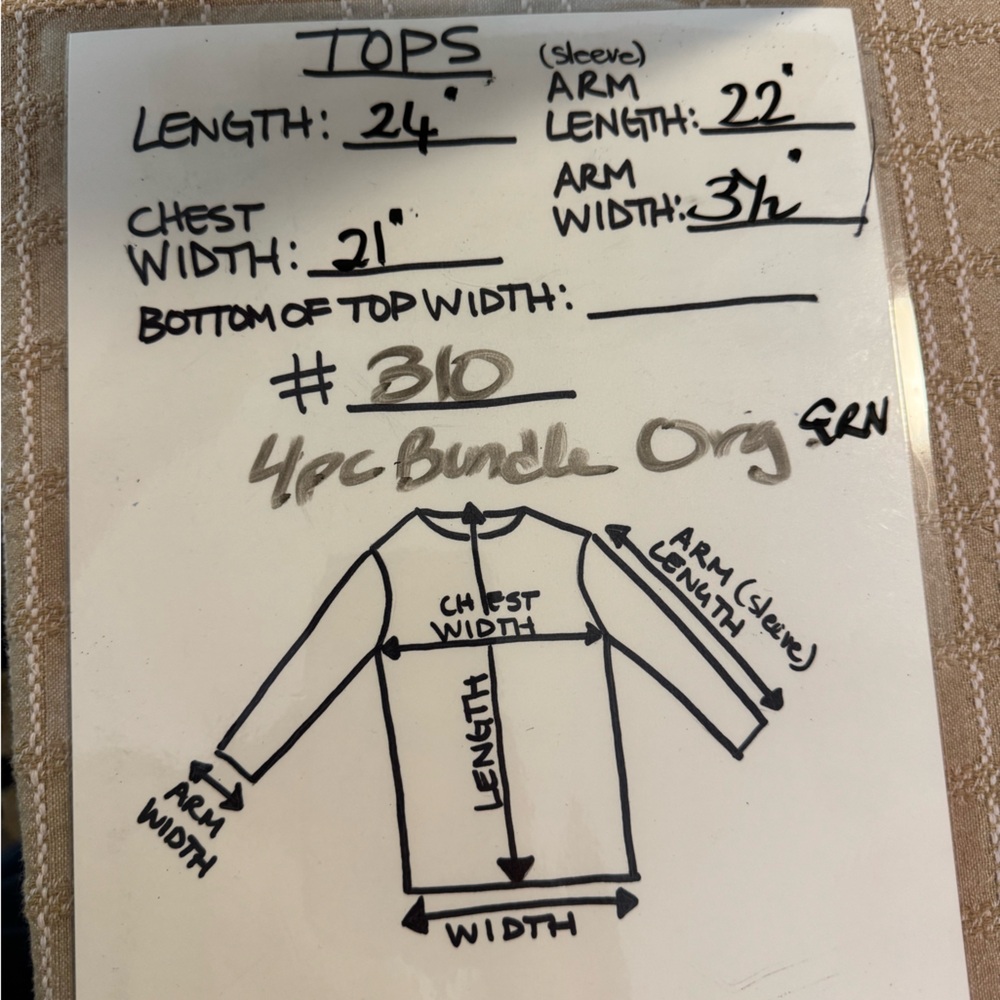 TOPS
LENGTH: 24"
(sleeve)
ARM
LENGTH: 22"
CHEST
WIDTH: 21"
ARM
WIDTH: 3½"
BOTTOM OF TOP WIDTH:
# 310
4pc Bundle Org GRN
CHEST
WIDTH
LENGTH
ARM (sleeve)
LENGTH
ARM
WIDTH
WIDTH